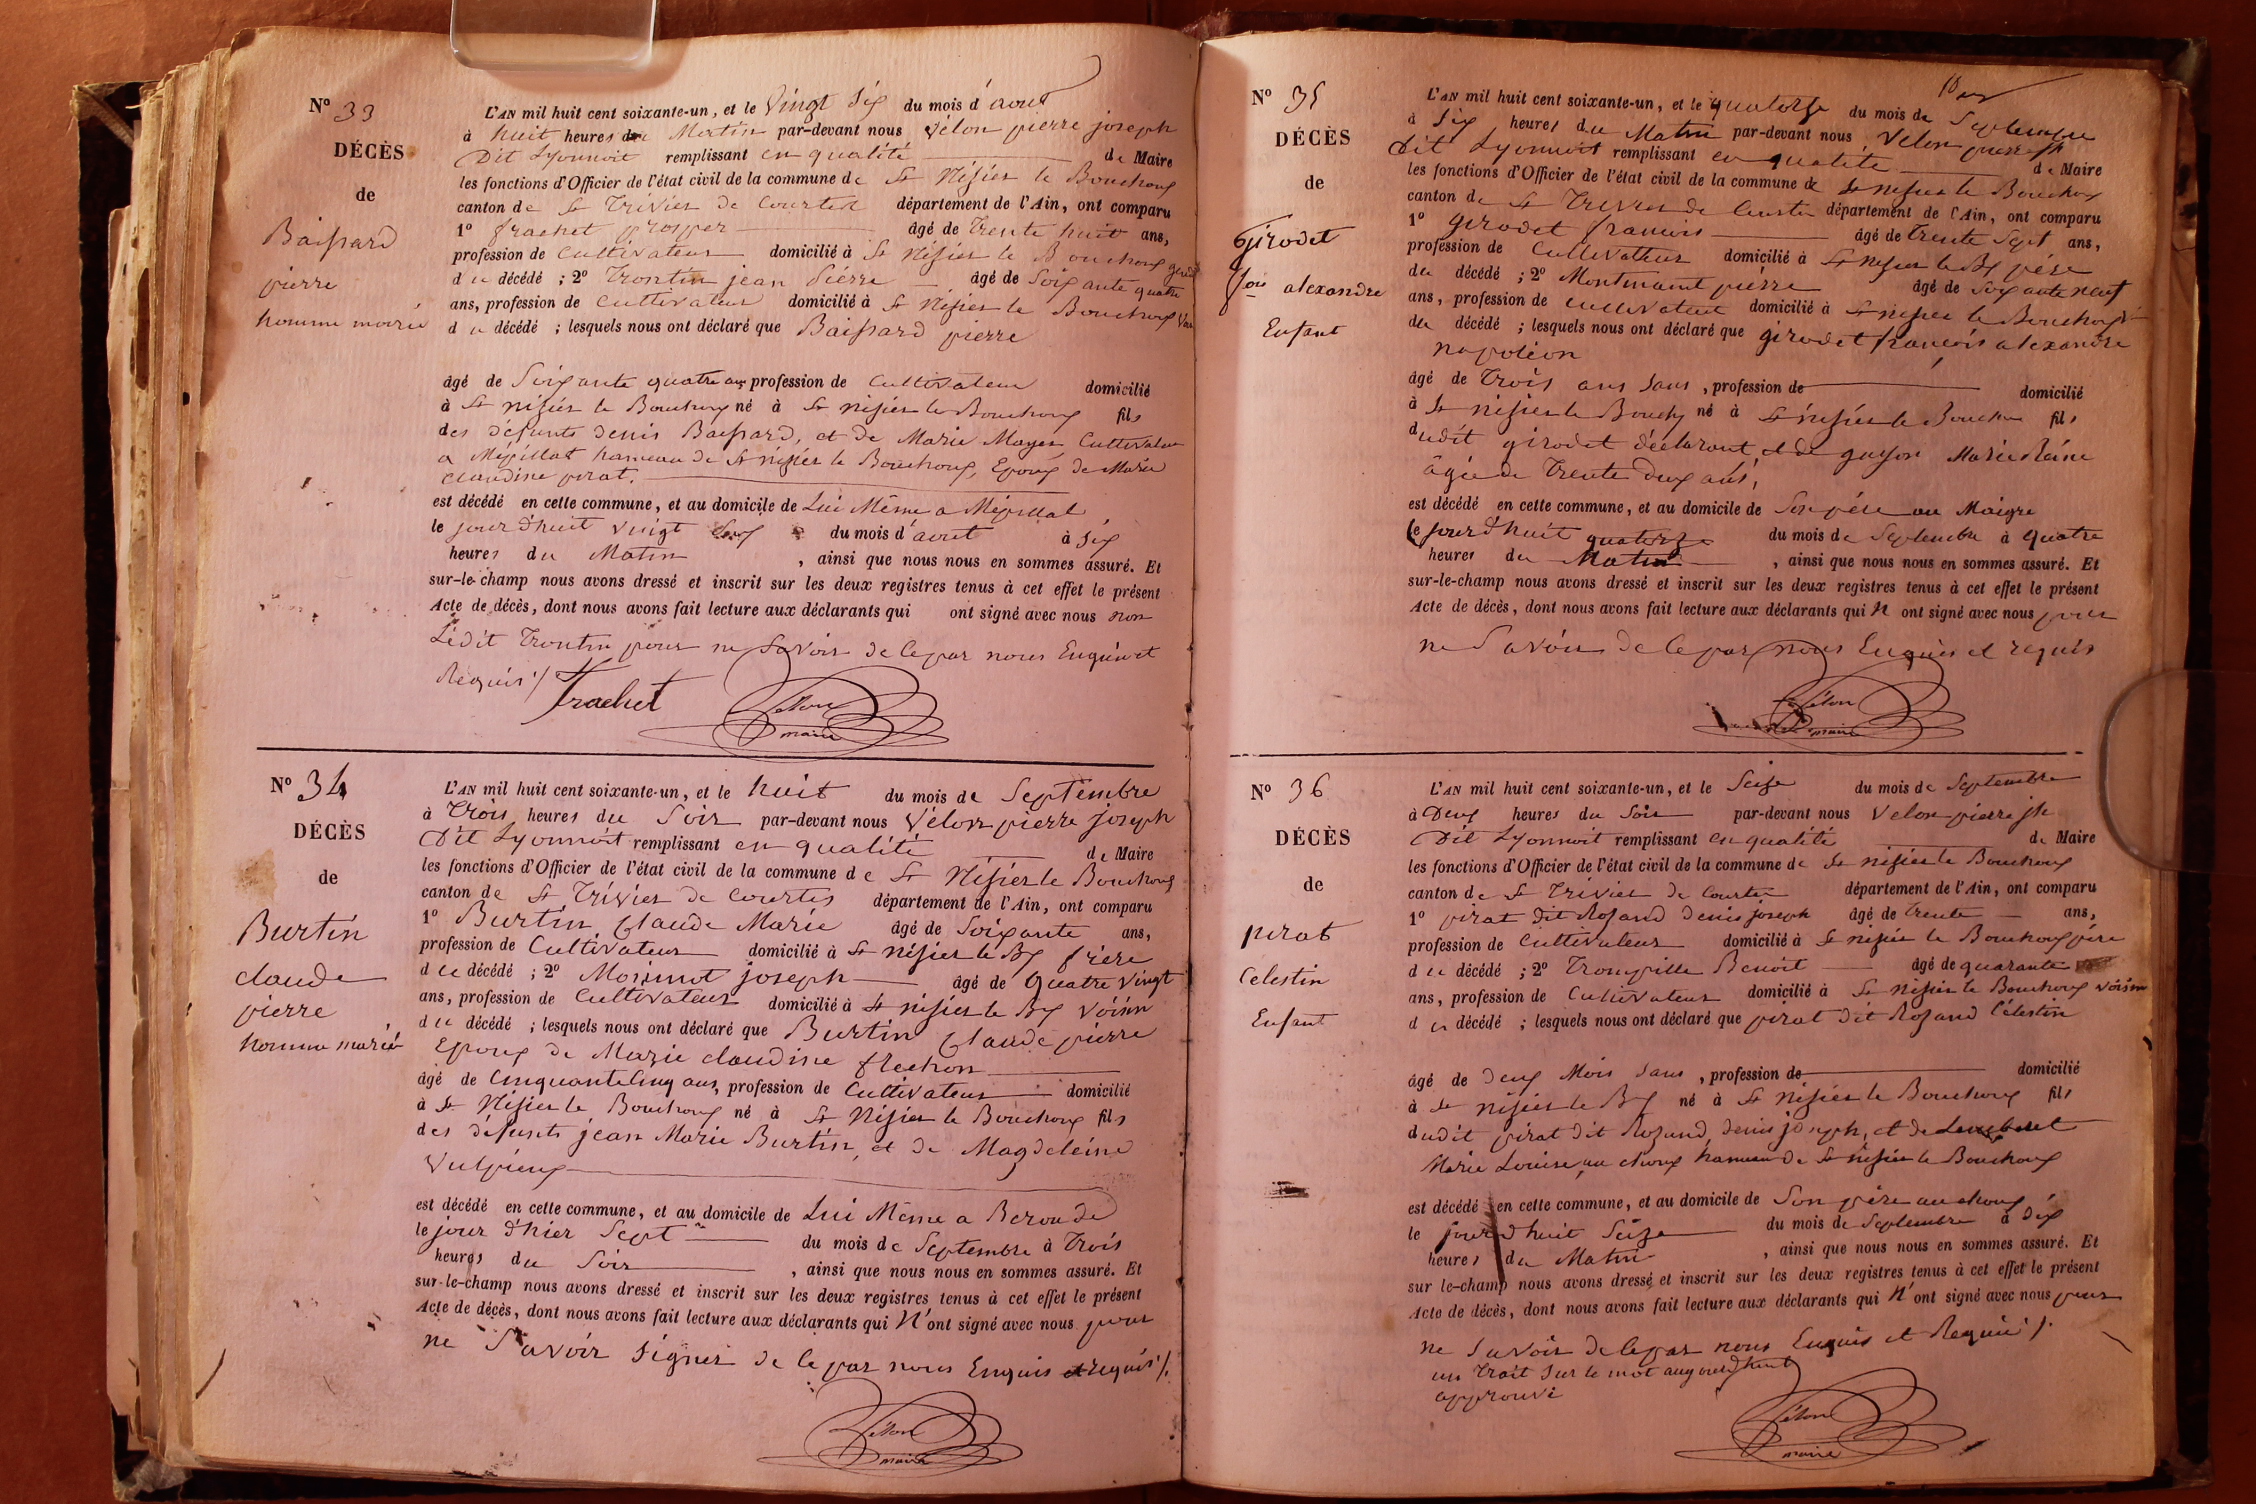 Nº 33
DÉCÈS
de
Baissard
pierre
homme marié
L'AN mil huit cent soixante-un, et le Vingt Six du mois d'aout
à huit heures du Matin par-devant nous Vélon pierre joseph
Dit Lyonnoit remplissant en qualité de Maire
les fonctions d'Officier de l'état civil de la commune de St Nisier le Bouchoux
canton de St Trivier de Courtes département de l'Ain, ont comparu
1º frachet prosper âgé de Trente huit ans,
profession de Cultivateur domicilié à St Nisier le Bouchoux
du décédé ; 2º Trontin jean Pierre âgé de Soixante quatre
ans, profession de Cultivateur domicilié à St Nisier le Bouchoux
du décédé ; lesquels nous ont déclaré que Baissard pierre
âgé de Soixante quatre ans profession de Cultivateur domicilié
à St nisier le Bouchoux né à St nisier le Bouchoux fils
des défunts denis Baissard, et de Marie Moyen Cultivateur
a Mépillat hameau de St nisier le Bouchoux, Epoux de Marie
Claudine pirat.
est décédé en cette commune, et au domicile de Lui Même a Mépillat
le jourd'huit vingt Six du mois d'aout à Six
heures du Matin , ainsi que nous nous en sommes assuré. Et
sur-le-champ nous avons dressé et inscrit sur les deux registres tenus à cet effet le présent
Acte de décès, dont nous avons fait lecture aux déclarants qui ont signé avec nous non
Ledit Trontin pour ne Savoir de ce par nous Enquis et
Requis ./
Frachet Vélon
maire
Nº 34
DÉCÈS
de
Burtin
claude
pierre
homme marié
L'AN mil huit cent soixante-un, et le huit du mois de Septembre
à Trois heures du Soir par-devant nous Vélon pierre joseph
Dit Lyonnoit remplissant en qualité de Maire
les fonctions d'Officier de l'état civil de la commune de St Nisier le Bouchoux
canton de St Trivier de Courtes département de l'Ain, ont comparu
1º Burtin Claude Marie âgé de Soixante ans,
profession de Cultivateur domicilié à St nisier le Bx frère
du décédé ; 2º joseph âgé de Quatre Vingt
ans, profession de Cultivateur domicilié à St nisier le Bx Voisin
du décédé ; lesquels nous ont déclaré que Burtin Claude pierre
Epoux de Marie claudine flechon
âgé de Cinquante Cinq ans, profession de Cultivateur domicilié
à St Nisier le Bouchoux né à St Nisier le Bouchoux fils
des défunts jean Marie Burtin, et de Magdeleine
Vulpieux
est décédé en cette commune, et au domicile de Lui Même a Beroude
le jour d'hier Sept du mois de Septembre à Trois
heures du Soir , ainsi que nous nous en sommes assuré. Et
sur-le-champ nous avons dressé et inscrit sur les deux registres tenus à cet effet le présent
Acte de décès, dont nous avons fait lecture aux déclarants qui N'ont signé avec nous pour
ne Savoir Signer de ce par nous Enquis et requis ./.
Vélon
maire
Nº 35
DÉCÈS
de
Girodet
fois alexandre
Enfant
L'AN mil huit cent soixante-un, et le quatorze du mois de Septembre
à Six heures du Matin par-devant nous Velon pierre jh
Dit Lyonnoit remplissant en qualité de Maire
les fonctions d'Officier de l'état civil de la commune de St nisier le Bouchoux
canton de St Trivier de Courtes département de l'Ain, ont comparu
1º girodet francois âgé de Trente Sept ans,
profession de Cultivateur domicilié à St nisier le Bx père
du décédé ; 2º pierre âgé de Soixante neuf
ans, profession de Cultivateur domicilié à St nisier le Bouchoux
du décédé ; lesquels nous ont déclaré que girodet françois alexandre
napoléon
âgé de Trois ans Sans , profession de domicilié
à St nisier le Bouchx né à St nisier le Bouchoux fils
dudit girodet déclarant, et de guyon Marie Reine
âgée de Trente Deux ans,
est décédé en cette commune, et au domicile de Son père au Maigre
le jourd'huit quatorze du mois de Septembre à quatre
heures du Matin , ainsi que nous nous en sommes assuré. Et
sur-le-champ nous avons dressé et inscrit sur les deux registres tenus à cet effet le présent
Acte de décès, dont nous avons fait lecture aux déclarants qui N ont signé avec nous pour
ne Savoir de ce par nous Enquis et requis
Vélon
maire
Nº 36
DÉCÈS
de
pirat
Celestin
Enfant
L'AN mil huit cent soixante-un, et le Seize du mois de Septembre
à Deux heures du Soir par-devant nous Velon pierre jh
Dit Lyonnoit remplissant en qualité de Maire
les fonctions d'Officier de l'état civil de la commune de St nisier le Bouchoux
canton de St Trivier de Courtes département de l'Ain, ont comparu
1º pirat dit Rozand denis joseph âgé de Trente ans,
profession de Cultivateur domicilié à St nisier le Bouchoux père
du décédé ; 2º Trompille Benoit âgé de quarante
ans, profession de Cultivateur domicilié à St Nisier le Bouchoux voisin
du décédé ; lesquels nous ont déclaré que pirat dit Rozand Célestin
âgé de Deux Mois Sans , profession de domicilié
à St nisier le Bx né à St Nisier le Bouchoux fils
dudit pirat dit Rozand denis joseph, et de
Marie Louise, au choux hameau de St nisier le Bouchoux
est décédé en cette commune, et au domicile de Son père au choux
le jourd'huit Seize du mois de Septembre à Dix
heures du Matin , ainsi que nous nous en sommes assuré. Et
sur-le-champ nous avons dressé et inscrit sur les deux registres tenus à cet effet le présent
Acte de décès, dont nous avons fait lecture aux déclarants qui N'ont signé avec nous pour
ne Savoir de ce par nous Enquis et Requis ./.
un trait sur le mot aujourd'huit
approuvé
Vélon
maire